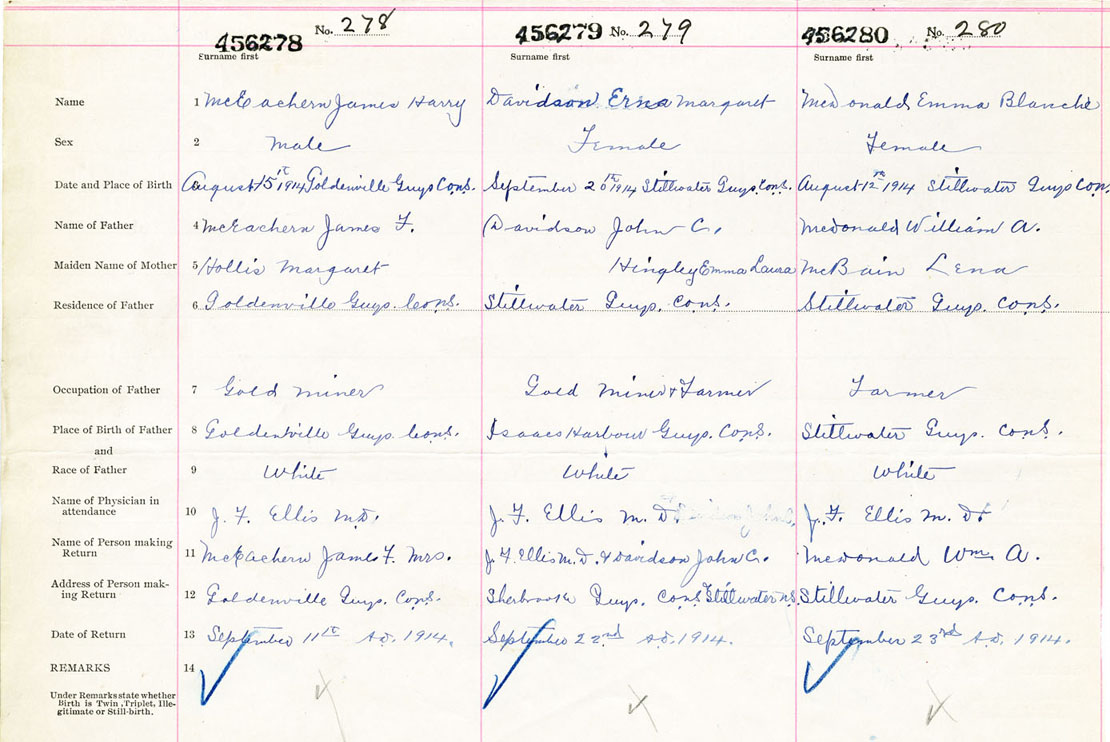 456278 No. 278 456279 No. 279 456280 No. 280
Surname first Surname first Surname first
Name 1 McEachern James Harry Davidson Erna Margaret McDonald Emma Blanche
Sex 2 Male Female Female
Date and Place of Birth August 15th 1914 Goldenville Guys Cons. September 20th 1914 Stillwater Guys Cons. August 12th 1914 Stillwater Guys Con
Name of Father 4 McEachern James F. Davidson John C. McDonald William A.
Maiden Name of Mother 5 Hollis Margaret Hingley Emma Laura McBain Lena
Residence of Father 6 Goldenville Guys. Cons. Stillwater Guys. Cons. Stillwater Guys. Cons.
Occupation of Father 7 Gold Miner Gold Miner & Farmer Farmer
Place of Birth of Father 8 Goldenville Guys. Cons. Isaacs Harbour Guys. Cons. Stillwater Guys. Cons.
and
Race of Father 9 White White White
Name of Physician in
attendance 10 J. F. Ellis M.D. J. F. Ellis M. D. J. F. Ellis M. D.
Name of Person making
Return 11 McEachern James F. Mrs. J F. Ellis M. D. & Davidson John C. McDonald Wm A.
Address of Person mak-
ing Return 12 Goldenville Guys. Cons. Sherbrooke Guys. Cons Stillwater N.S. Stillwater Guys. Cons.
Date of Return 13 September 11th A.D. 1914. September 22nd A.D. 1914. September 23rd A.D. 1914.
REMARKS 14
Under Remarks state whether
Birth is Twin, Triplet, Ille-
gitimate or Still-birth.